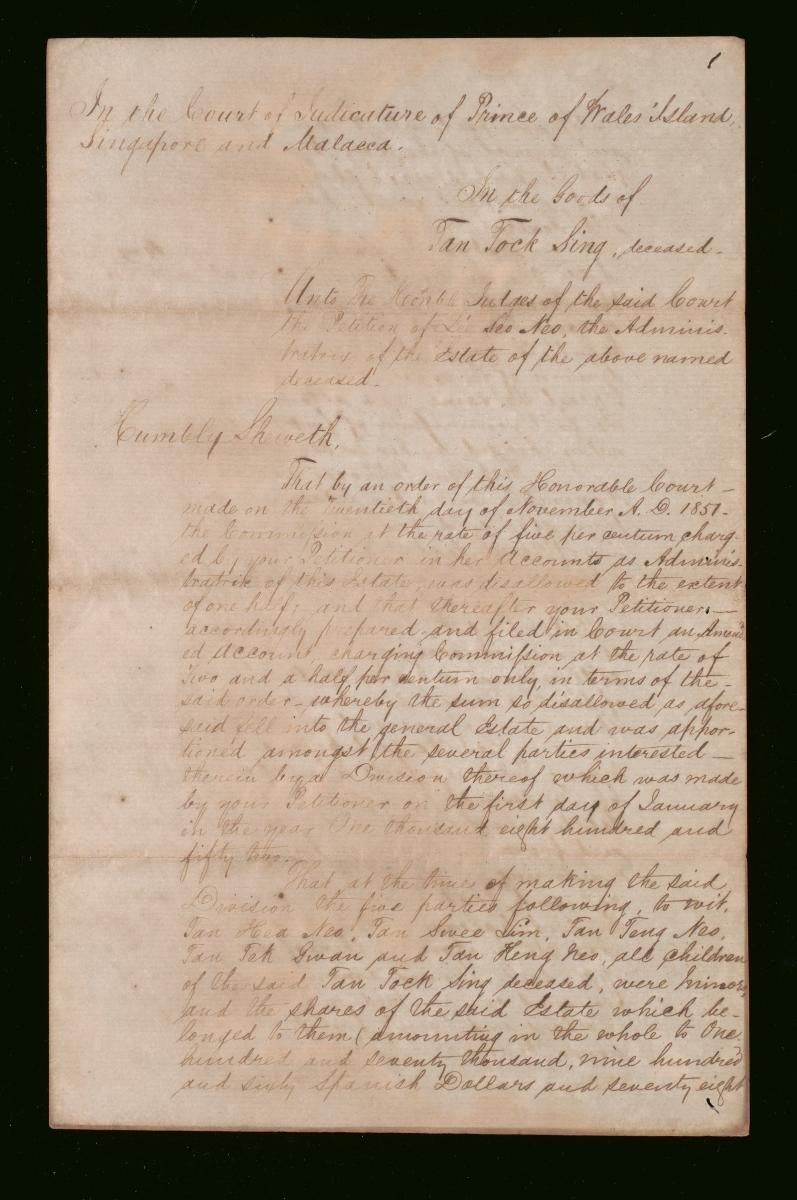 1
In the Court of Judicature of Prince of Wales' Island,
Singapore and Malacca.
In the Goods of
Tan Tock Sing, deceased.
Unto The Honble Judges of the said Court
the Petition of Seo Neo, the Adminis-
tratrix of the Estate of the above named
deceased.
Humbly Sheweth,
That by an order of this Honorable Court —
made on the twentieth day of November A. D. 1851.
the Commission at the rate of five per centum charg-
ed by your Petitioner in her Accounts as Adminis-
tratrix of this Estate, was disallowed to the extent
of one half; and that thereafter your Petitioner, —
accordingly prepared and filed in Court an Amend-
ed Account charging Commission at the rate of
Two and a half per centum only, in terms of the —
said order — whereby the sum so disallowed as afore-
said fell into the general Estate and was appor-
tioned amongst the several parties interested —
therein by a Division thereof which was made
by your Petitioner on the first day of January
in the year One thousand eight hundred and
fifty two.
That at the time of making the said
Division the five parties following, to wit,
Tan Hea Neo, Tan Swee Lim, Tan Teng Neo,
Tan Tek Gwan and Tan Heng Neo, all children
of the said Tan Tock Sing deceased, were Minors,
and the shares of the said Estate which be-
longed to them (amounting in the whole to One
hundred and seventy thousand, nine hundred
and sixty Spanish Dollars and seventy eight